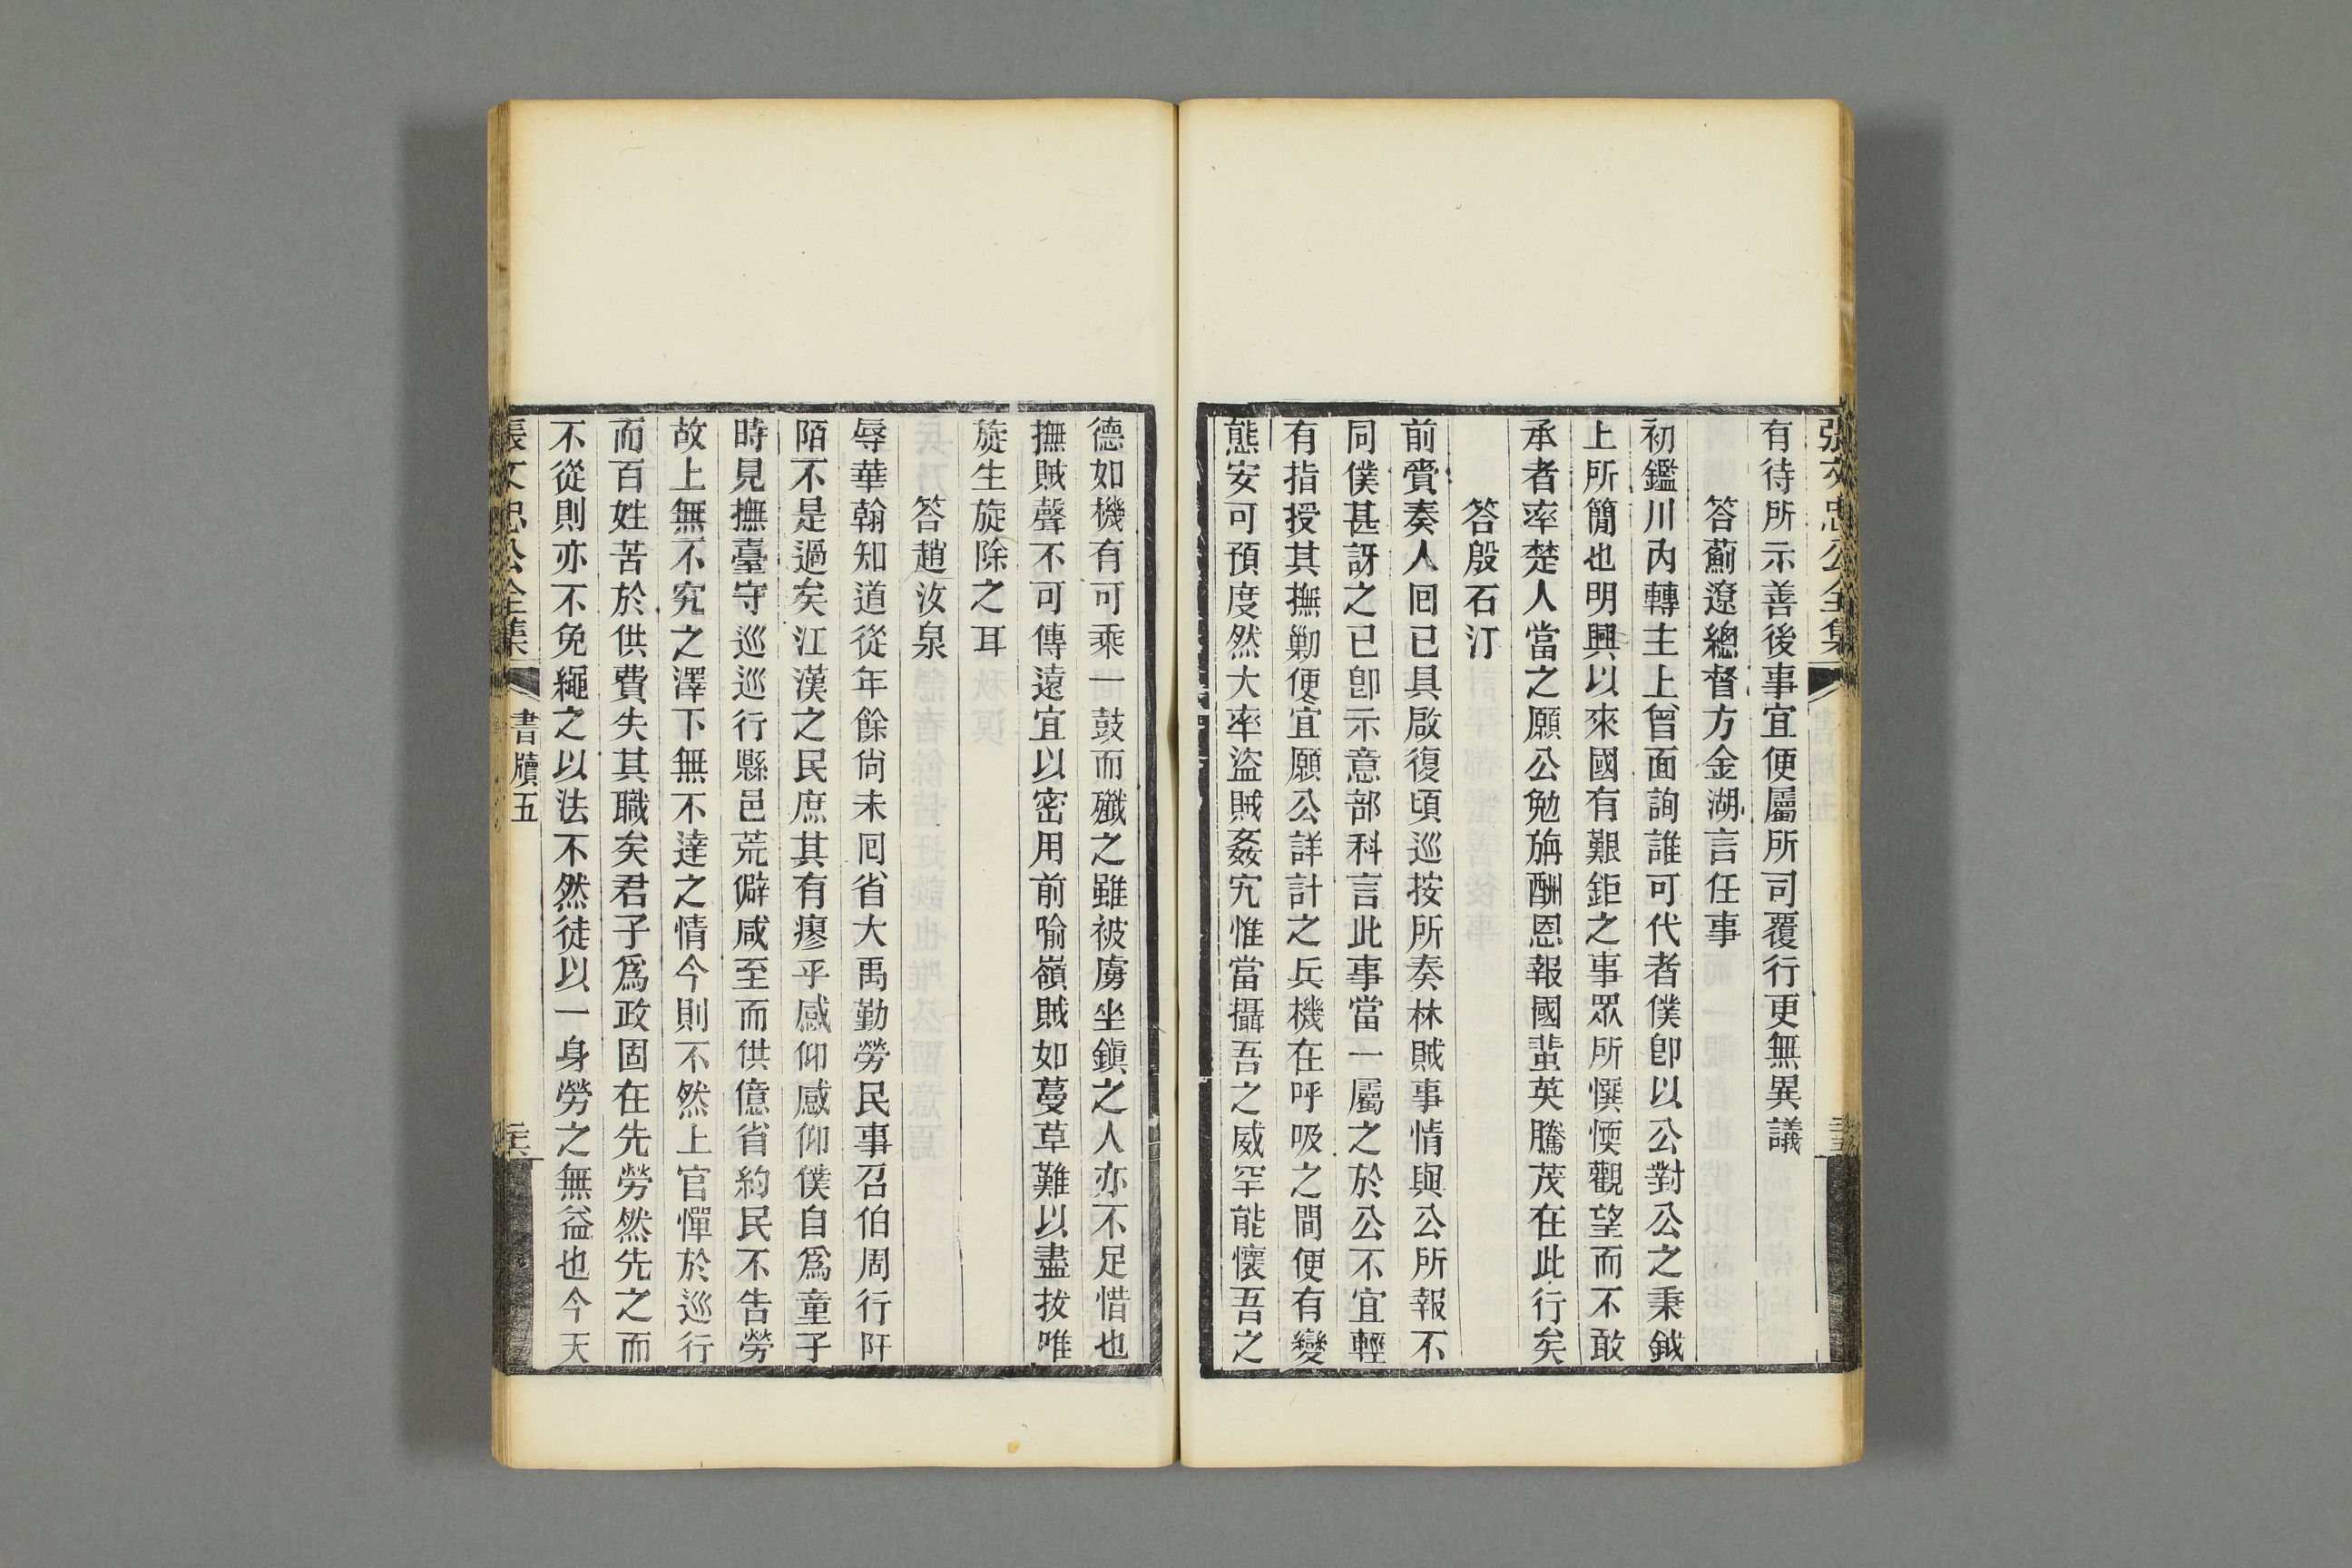 張文忠公全集
有待所示善後事宜便屬所司覆行更無異議
答薊遼總督方金湖言任事
初鑑川內轉主上曾面詢誰可代者僕卽以公對公之秉鉞
上所簡也明興以來國有艱鉅之事眾所憚愞觀望而不敢
承者率楚人當之願公勉旃酬恩報國蜚英騰茂在此行矣
答殷石汀
前賫奏人回已具啟復頃巡按所奏林賊事情與公所報不
同僕甚訝之已卽示意部科言此事當一屬之於公不宜輕
有指授其撫勦便宜願公詳計之兵機在呼吸之間便有變
態安可預度然大率盜賊姦宄惟當攝吾之威罕能懷吾之
德如機有可乘一鼓而殲之雖被虜坐鎭之人亦不足惜也
撫賊聲不可傳遠宜以密用前喻嶺賊如蔓草難以盡拔唯
旋生旋除之耳
答趙汝泉
辱華翰知道從年餘尙未回省大禹勤勞民事召伯周行阡
陌不是過矣江漢之民庶其有瘳乎感仰感仰僕自爲童子
時見撫臺守巡巡行縣邑荒僻咸至而供億省約民不告勞
故上無不究之澤下無不達之情今則不然上官憚於巡行
而百姓苦於供費失其職矣君子爲政固在先勞然先之而
不從則亦不免繩之以法不然徒以一身勞之無益也今天
張文忠公全集 書牘五